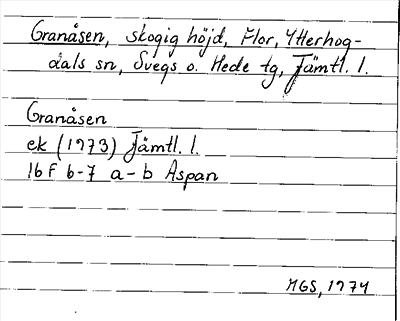 Granåsen, skogig höjd, Flor, Ytterhog-
dals sn, Svegs o. Hede tg, Jämtl. l.
Granåsen
ek (1973) Jämtl. l.
16 F 6-7 a-b Aspan
MGS, 1974